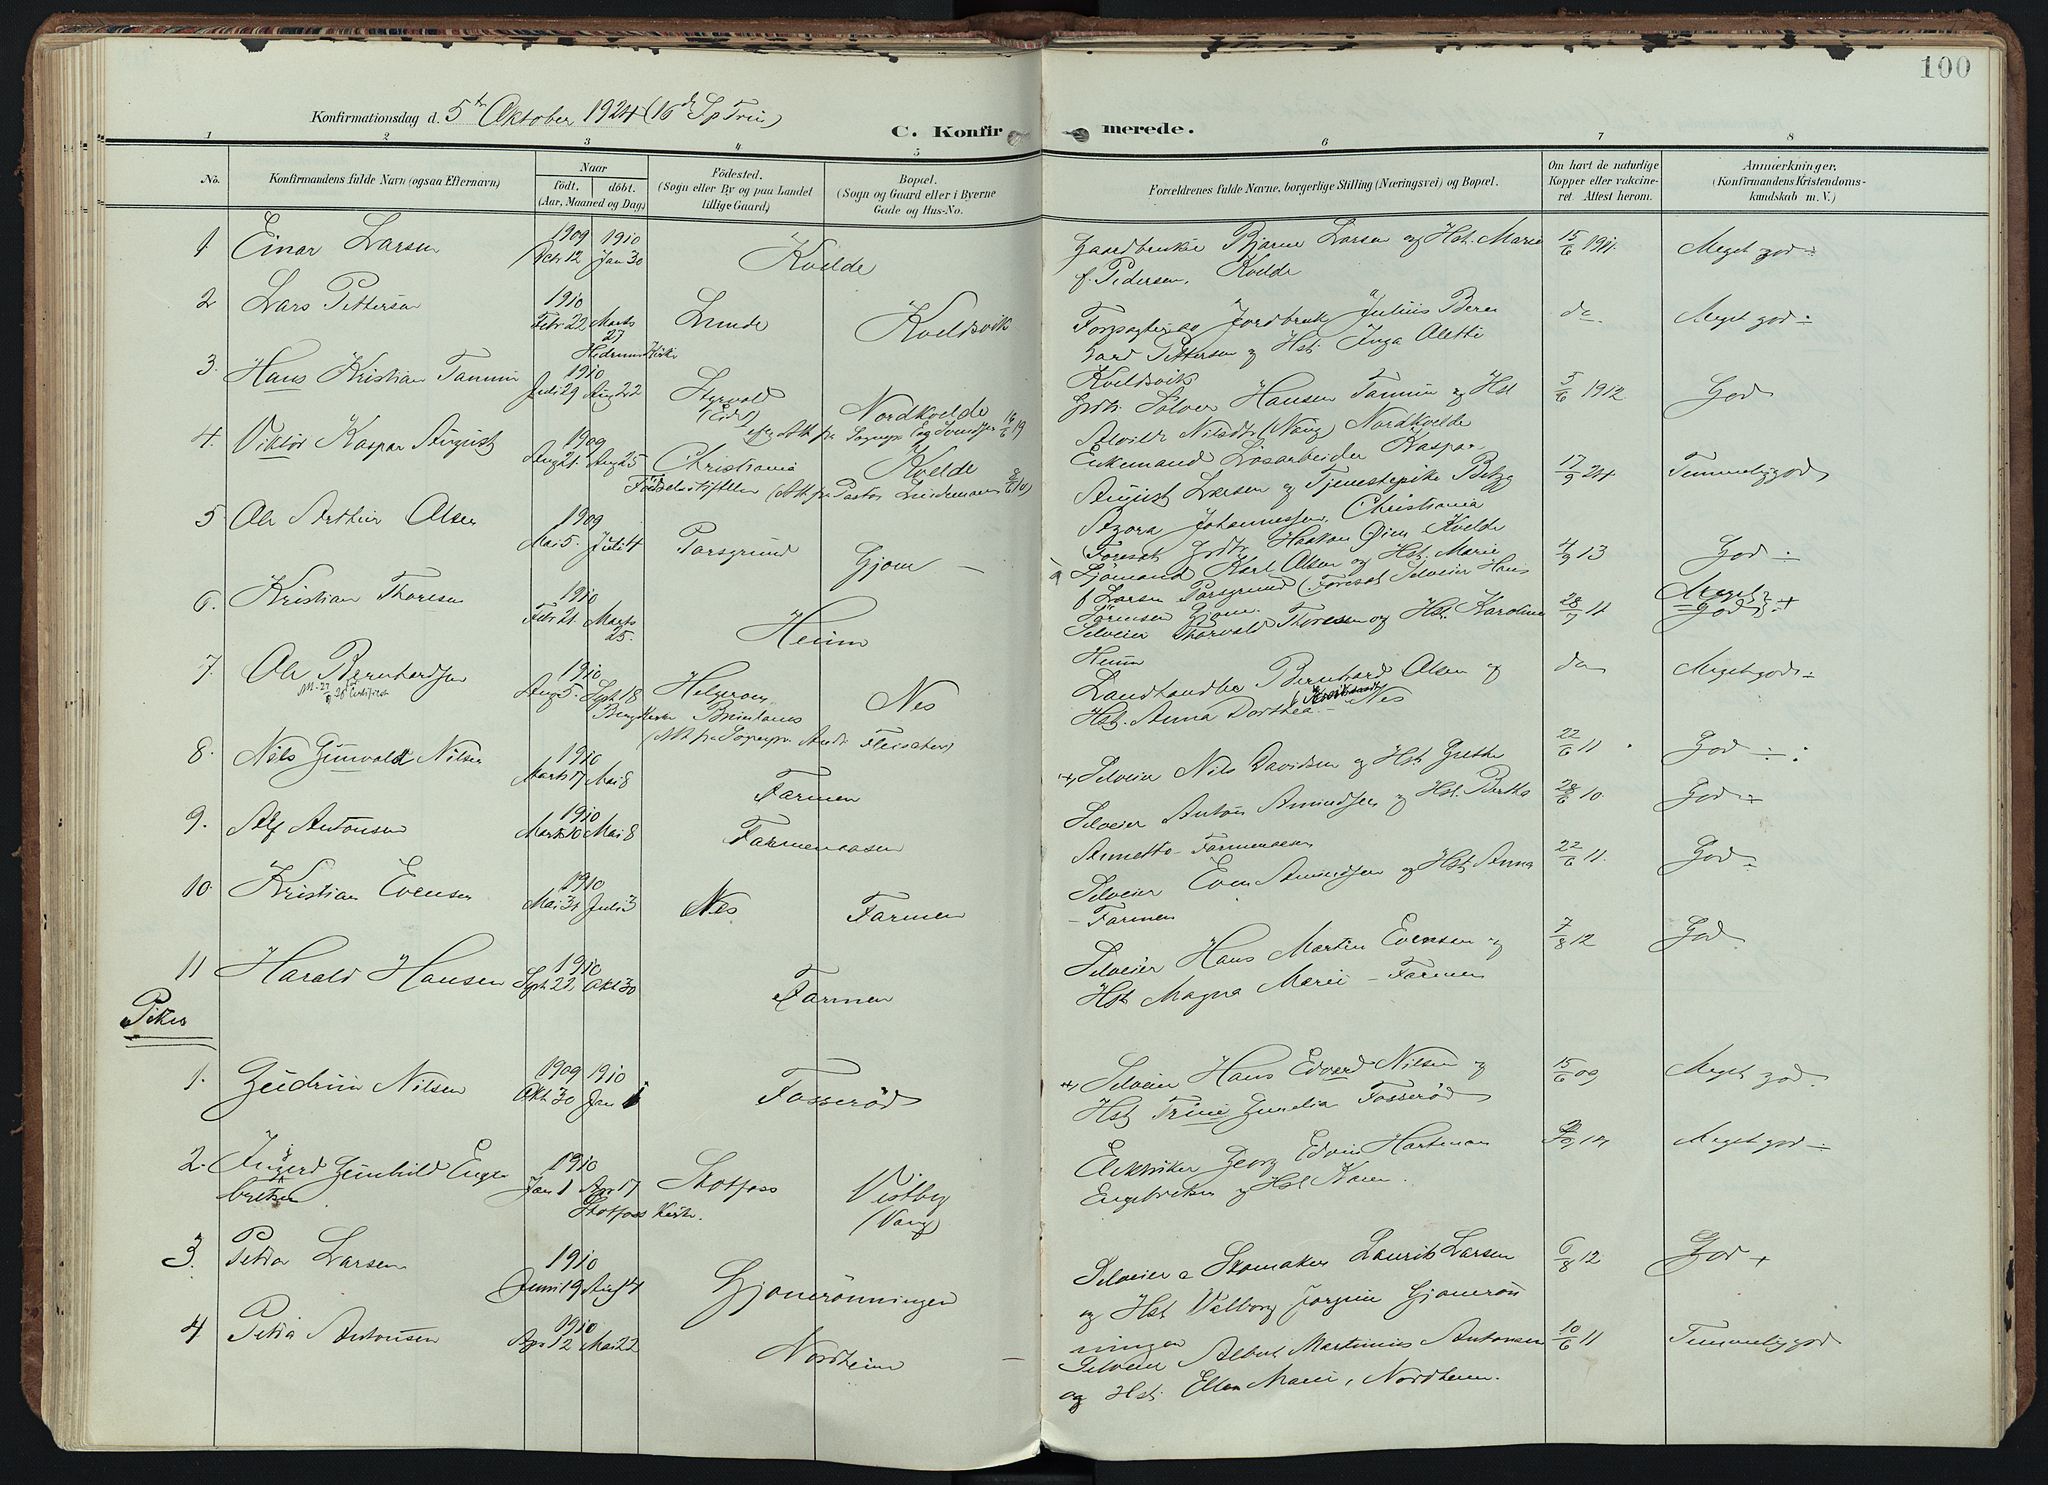 100
Konfirmationsdag d. 5te Oktober 1924 (16de S p Trin)
C. Konfirmerede.
1 2 3 4 5 6 7 8
No.
Konfirmandens fulde Navn (ogsaa Efternavn)
Naar
født. døbt.
(Aar, Maaned og Dag)
Fødested.
(Sogn eller By og paa Landet
tillige Gaard)
Bopæl.
(Sogn og Gaard eller i Byerne
Gade og Hus-No.
Forældrenes fulde Navne, borgerlige Stilling (Næringsvei) og Bopæl.
Om havt de naturlige
Kopper eller vakcine-
ret. Attest herom.
Anmærkninger.
(Konfirmandens Kristendoms-
kundskab m. V.)
1 Einar Larsen 1909 Octr 12 1910 Jan 30 Kvelde Gaardbruker Bjarne Larsen og Hst. Marie 15/6 1911 Meget god
f. Pedersen, Kvelde
2 Lars Pettersen 1910 Febr 22 Marts 27 Lunde Kveldsvik Forpagter Jordbruk Julius Bern do Meget god
Hedrum Kirke
hard Pettersen og Hst. Inga Alette
Kveldsvik
3. Hans Kristian Tammin 1910 Juli 29 Aug 22 Styrvold (Eids) Nordkvelde Hansen Tammin og Hst 5/6 1912 God
Alvilde Nilsdtr (Nang) Nordkvelde
4. Viktor Kaspar August 1909 Aug 21. Aug 25 Christiania Kvelde Enkemand Løsarbeider Kaspar 17/9 24 Temmelig god
Fødselsstiftelsen (Att. fra Pastor Lindeman
August Larsen og Tjenestepike Betzy
Azora Johannessen. Christiania
Foresat Haakon Øien Kvelde
5 Ole Arthur Olsen 1909 Mai 5. Juli 4 Porsgrund Gjone — Sjømand Karl Olsen og Hst. Marie 4/9 13 God
f Larsen Porsgrund (Foresat Selveier Hans
Sørensen Gjone.
6. Kristian Thoresen 1910 Febr 21. Marts 25. Heum Selveier Thorvald Thoresen og Hst. Karoline 28/9 11 Meget God +
Heum
7. Ole Bernhardsen 1910 Aug 5. Sept 18 Helgeroen Nes Landhandler Bernhard Olsen og do Meget god
Berg Kirke Brunlanes
(Att fra Sognepr. Andr Fleischer)
Hst. Anna Dorthea — Nes
8. Nils Gunvald Nilsen 1910 Marts 17 Mai 8 Farmen Selveier Nils Davidsen og Hst. Grethe 22/6 11 God
9. Alf Antonsen 1910 Marts 10 Mai 8 Farmenaasen Selveier Anton Amundsen og Hst. Bertha 28/6 10. God
Annette — Farmenaasen
10. Kristian Evensen 1910 Mai 31 Juli 3 Nes Farmen Selveier Even Amundsen og Hst. Anna 22/6 11. God
— Farmen
11 Harald Hansen 1910 Sept. 22 Okt 30 Farmen Selveier Hans Martin Evensen og 7/8 12 God
Hst. Magna Marie — Farmen
Piker
1. Gudrun Nilsen 1909 Okt. 30 1910 Jan Fosserød Selveier Hans Edvard Nilsen og 15/6 09 Meget god.
Hst. Trine Fosserød
2. Ingerd Gunhild Enge- 1910 Jan 1 Apr 17 Skotfoss Vestby Elektriker Georg Edvin Hartman Meget god
bretsen Skotfoss Kirke. (Vang)
Engebretsen og Hst Karen.
3. Petra Larsen 1910 Juni 19 Aug 14 Gjonerønningen Selveier & Skomaker Laurits Larsen 6/8 12 God +
og Hst Valborg Jorgine Gjonerøn
ningen
4 Petra Antonsen 1910 Apr 12 Mai 22 Nordheim — Selveier Albert Martinius Antonsen 10/6 11 Temmelig god
og Hst. Ellen Marie, Nordheim.